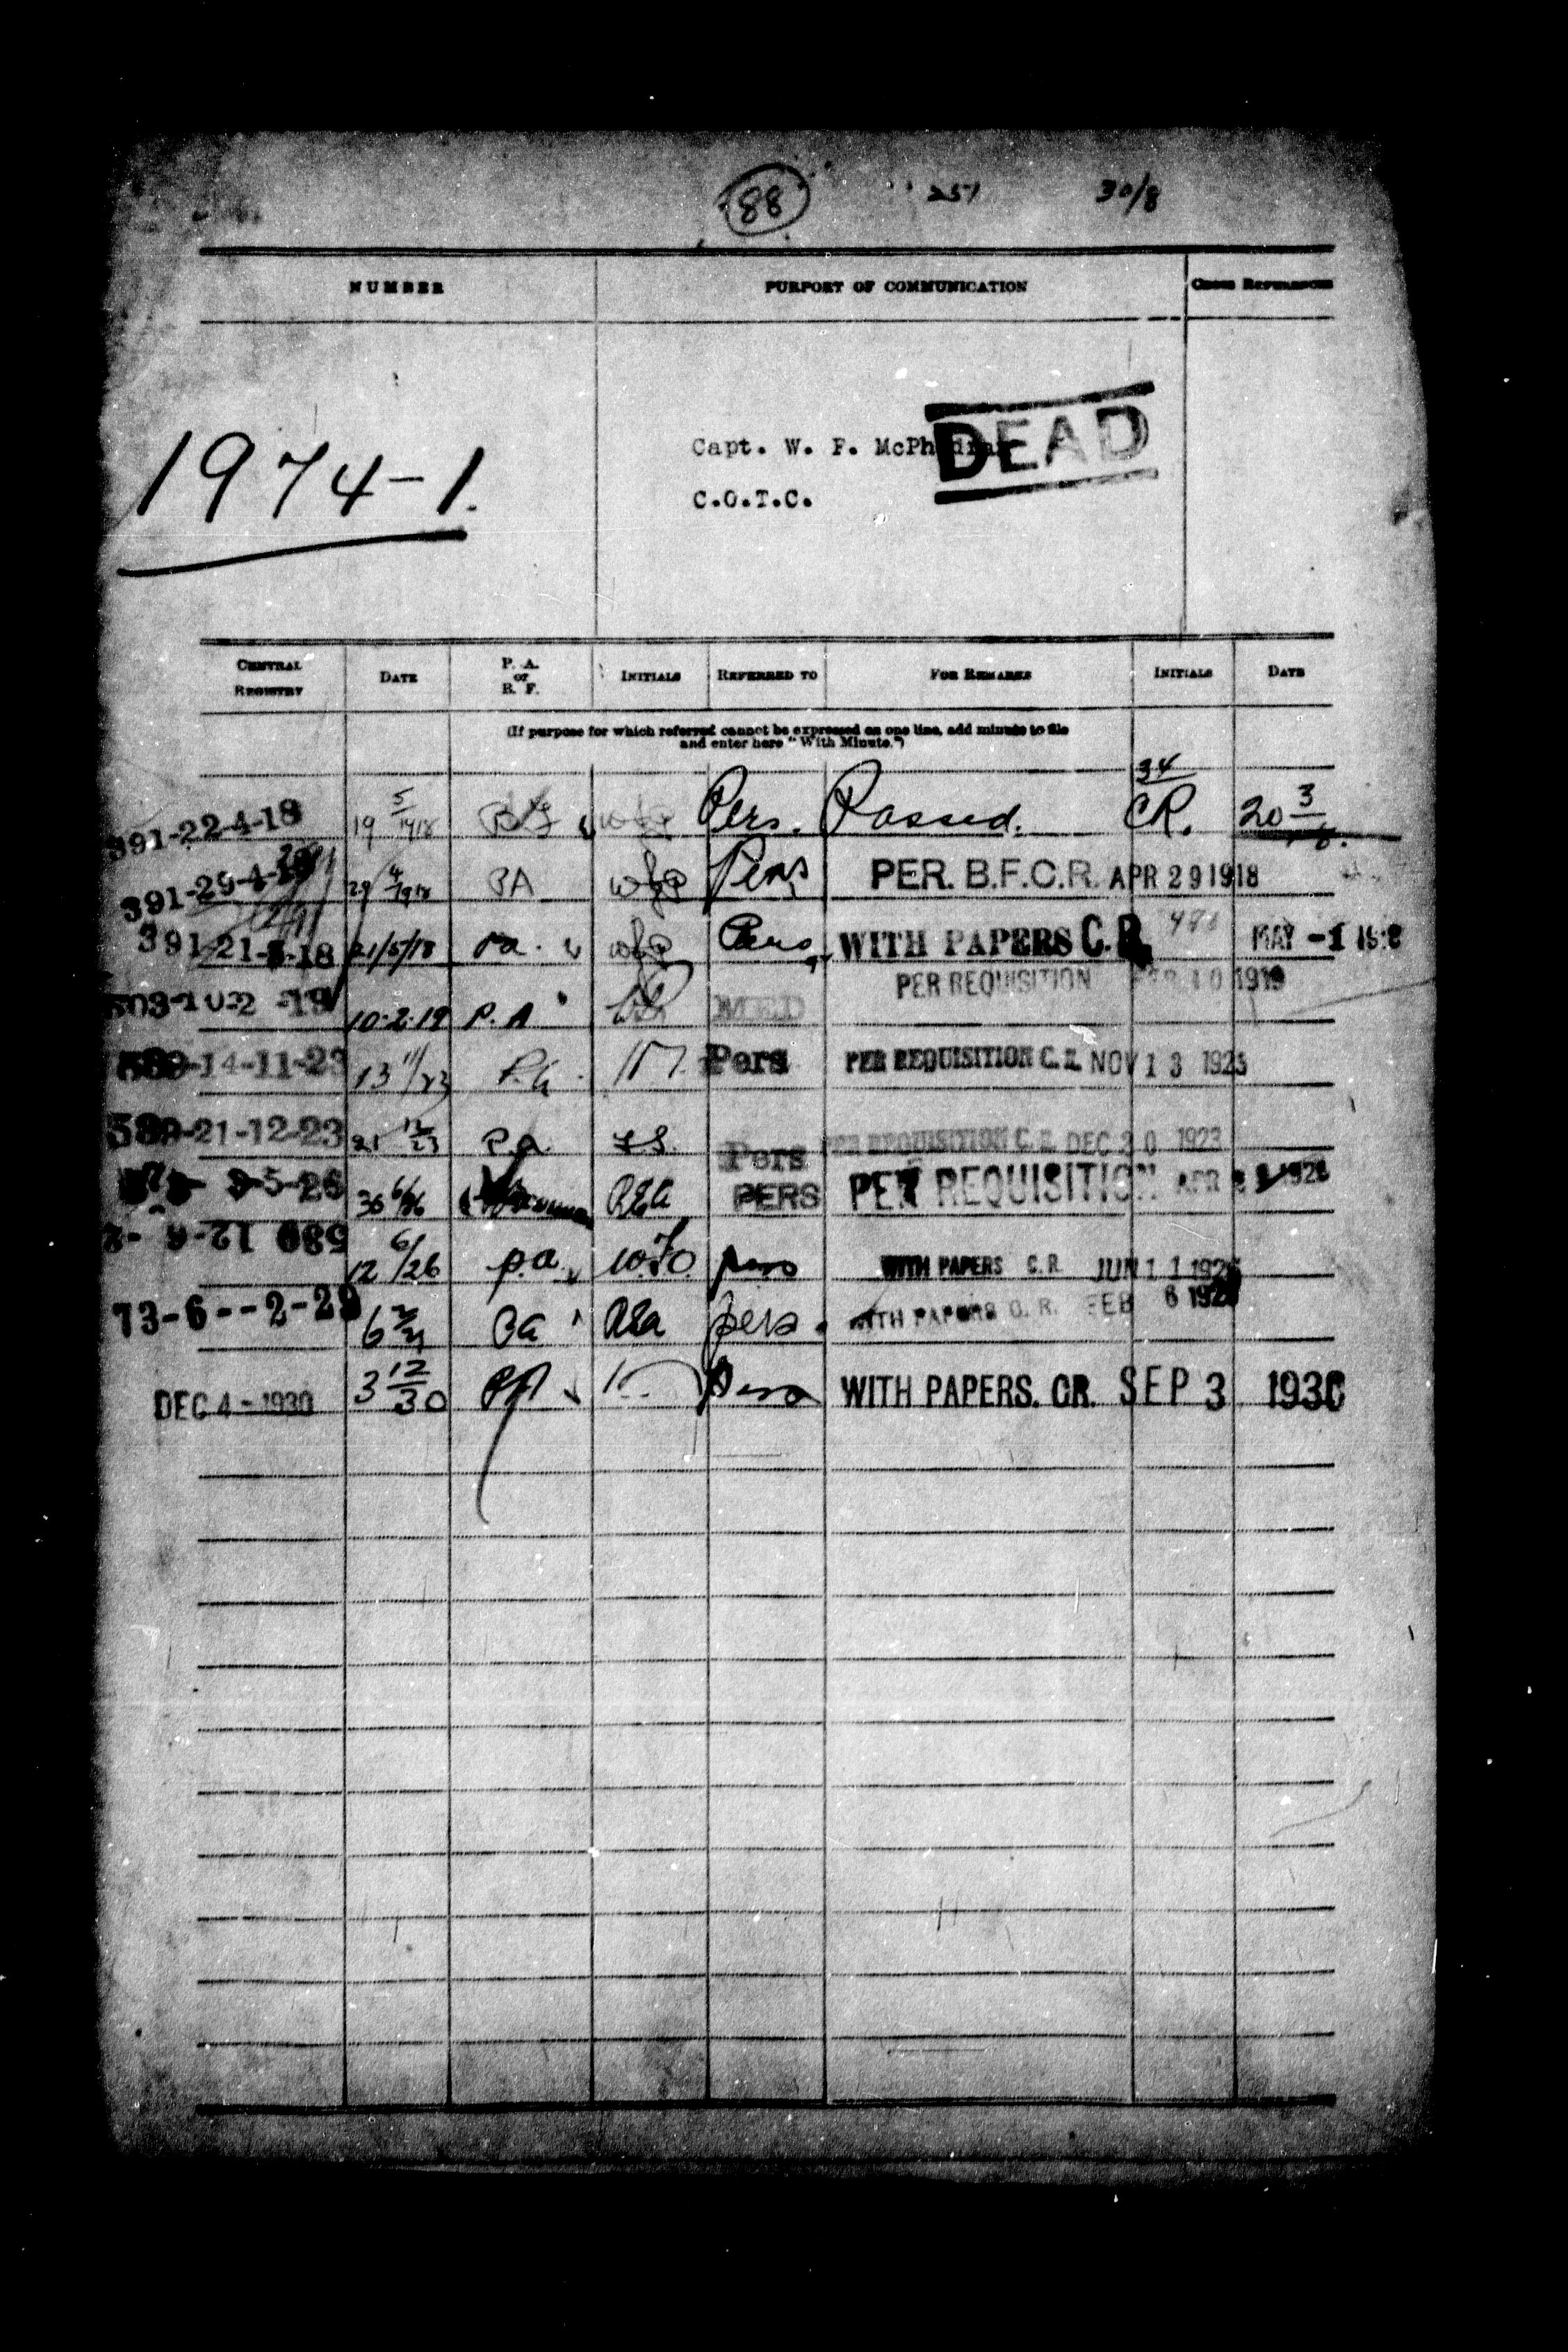 88 251 30/8
NUMBER PURPORT OF COMMUNICATION CROSS REFERENCES
1974-1.
DEAD
Capt. W. F.
C.O.T.C.
CENTRAL REGISTRY DATE P. A. or R. F. INITIALS REFERRED TO FOR REMARKS INITIALS DATE
(If purpose for which referred cannot be expressed on one line, add minute to file
and enter here "With Minute.")
34
391-22-4-18 19 5/1918 Pers. Passed. CR. 20 3
391-29-4-18 29 4/1918 PA Pers PER. B.F.C.R. APR 29 1918
391-21-5-18 21/5/18 Pa. Pers WITH PAPERS C.R. MAY -1 1918
PER REQUISITION 10 1919
503-10-2-19 10-2-19 P.A MED
589-14-11-23 13 11/23 P.A. Pers PER REQUISITION C.R. NOV 13 1923
589-21-12-23 21 12/23 P.a. Pers PER REQUISITION C.R. DEC 20 1923
3-5-26 30 6/26 REA PERS PER REQUISITION APR 1926
589 12-6-2 12 6/26 p.a. pers WITH PAPERS C.R. JUN 11 1926
73-6--2-29 6 2/29 Pa REa pers. WITH PAPERS C.R. FEB 6 1929
DEC 4 - 1930 3 12/30 PA Pers WITH PAPERS. CR. SEP 3 1930